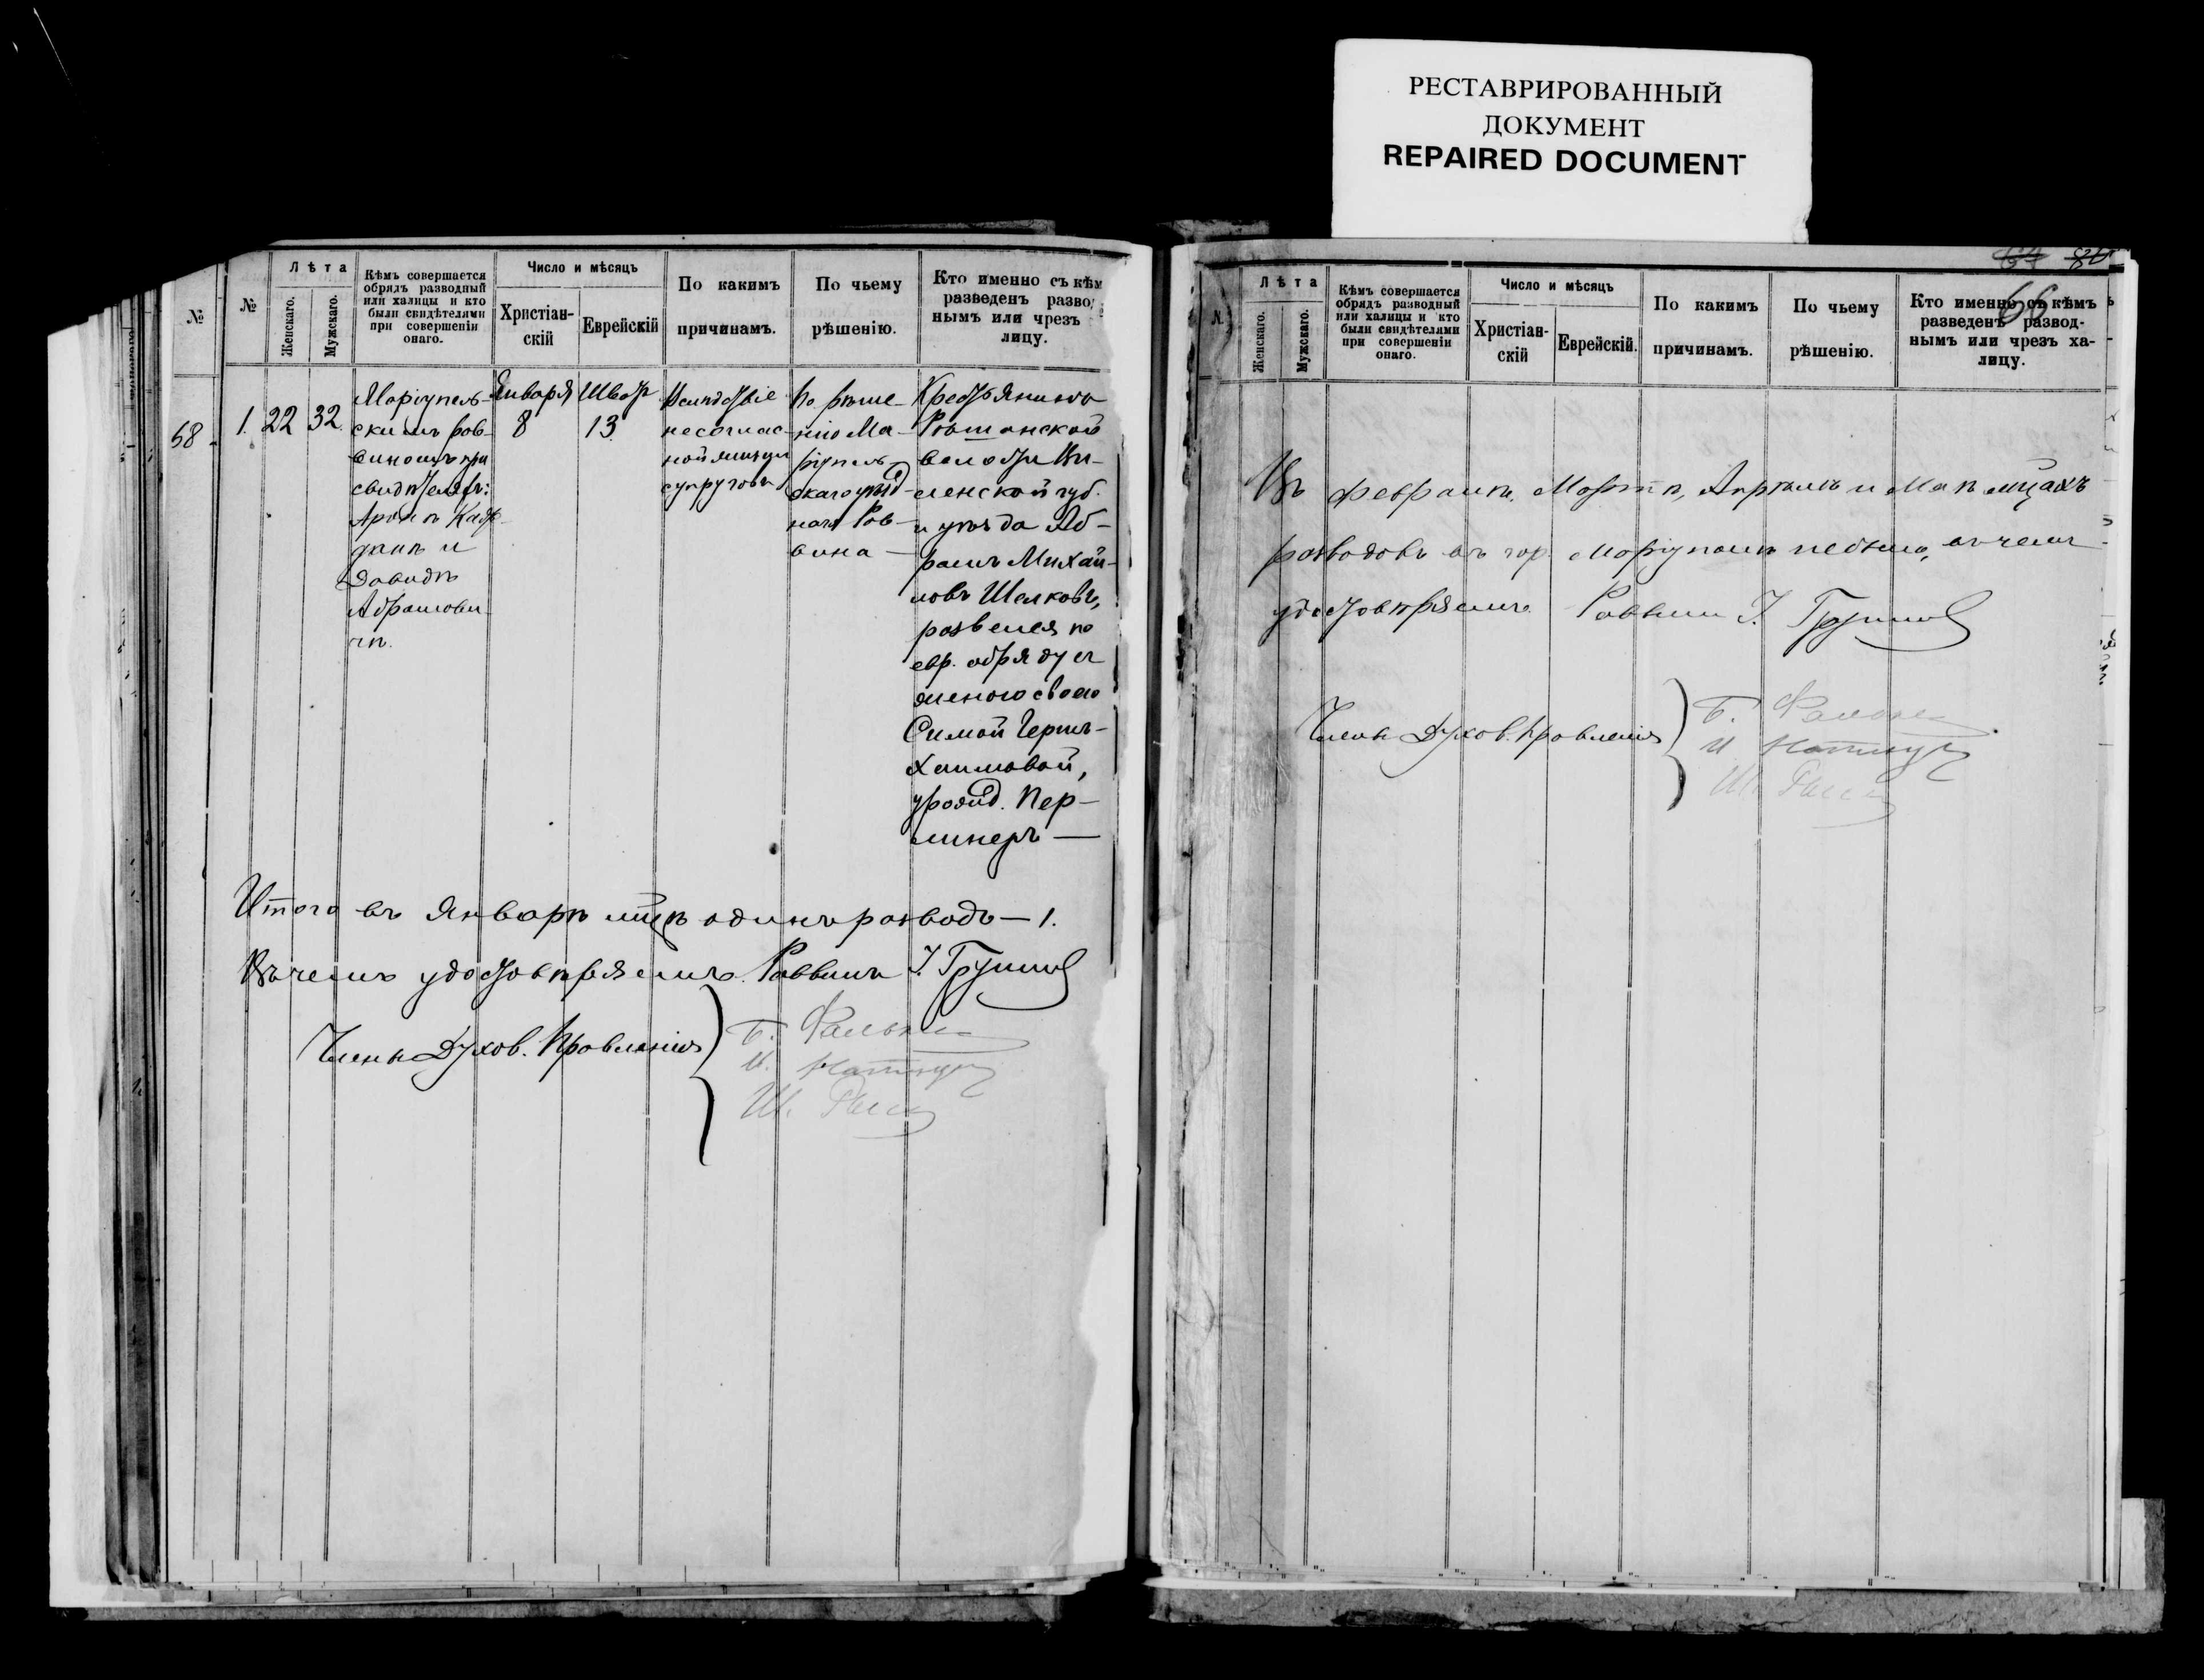 РЕСТАВРИРОВАННЫЙ
ДОКУМЕНТ
REPAIRED DOCUMENT
№
№
Лѣта
Женскаго.
Мужскаго.
Кѣмъ совершается
обрядъ разводный
или халицы и кто
были свидѣтелями
при совершеніи
онаго.
Число и мѣсяцъ
Христіан-
скій
Еврейскій
По какимъ
причинамъ.
По чьему
рѣшенію.
Кто именно съ кѣм
разведенъ разво
нымъ или чрезъ
лицу.
58
1.
22
32.
Маріуполь-
скимъ Рав-
виномъ при
свидѣтеляхъ:
Аронѣ
и
Давидѣ
Абрамови-
чѣ.
Января
8
Шватъ
13
Вслѣдствіе
несоглас-
ной жизни
супруговъ
По рѣше-
нію Ма-
ріуполь-
скаго уѣзд-
наго Рав-
вина —
Крестьянинъ
волости Ви-
ленской губ.
и уѣзда Аб-
рамъ Михай-
ловъ Шелковъ,
развелся по
евр. обряду съ
женою своею
Симой Гершъ-
Хаимовой,
урожд. Пер-
линеръ —
Итого въ Январѣ мцѣ одинъ разводъ — 1.
Въ чемъ удостовѣряемъ. Раввинъ
Члены Духов. Правленія
Б.
И.
Ш.
66
Лѣта
Женскаго.
Мужскаго.
Кѣмъ совершается
обрядъ разводный
или халицы и кто
были свидѣтелями
при совершеніи
онаго.
Число и мѣсяцъ
Христіан-
скій
Еврейскій.
По какимъ
причинамъ.
По чьему
рѣшенію.
Кто именно съ кѣмъ
разведенъ развод-
нымъ или чрезъ ха-
лицу.
Въ Февралѣ, Мартѣ, Апрѣлѣ и Маѣ мцахъ
разводовъ въ гор. Маріуполѣ небыло, въ чемъ
удостовѣряемъ Раввинъ
Члены Духов. Правленія
Б.
И
Ш.